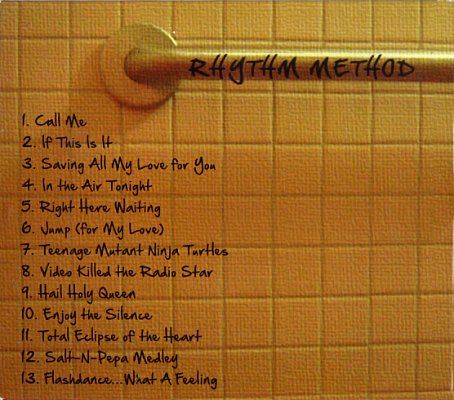 RHYTHM METHOD
1. Call Me
2. If This Is It
3. Saving All My Love for You
4. In the Air Tonight
5. Right Here Waiting
6. Jump (for My Love)
7. Teenage Mutant Ninja Turtles
8. Video Killed the Radio Star
9. Hail Holy Queen
10. Enjoy the Silence
11. Total Eclipse of the Heart
12. Salt-N-Pepa Medley
13. Flashdance...What A Feeling